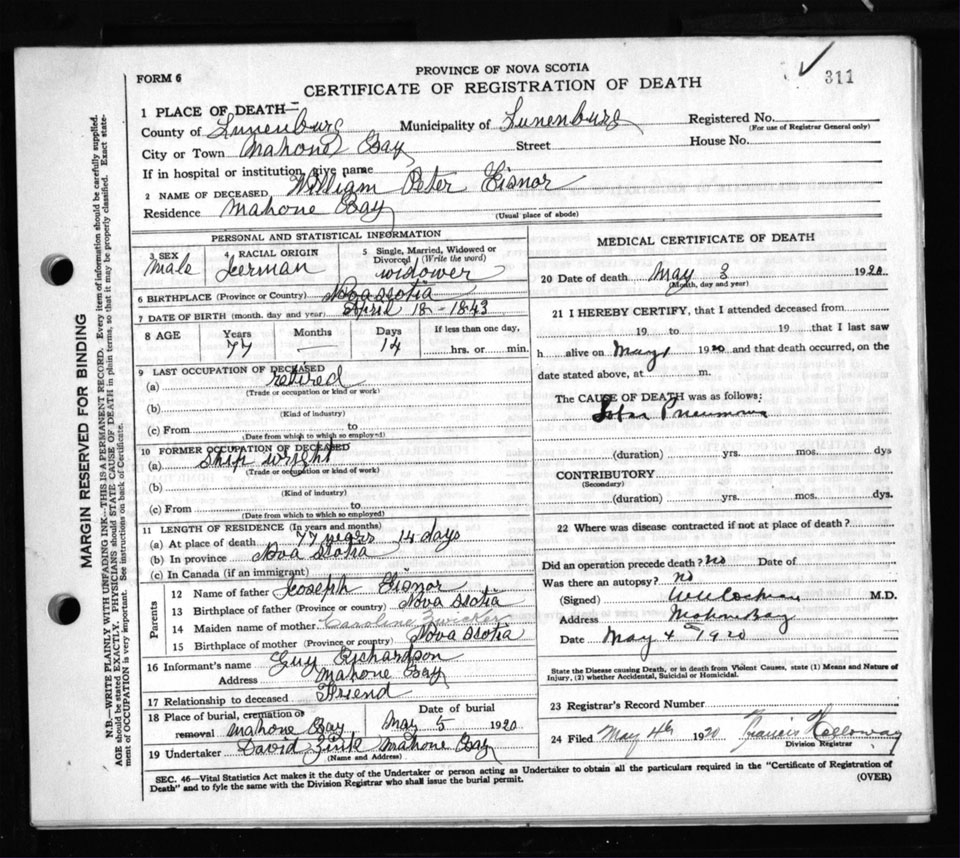 PROVINCE OF NOVA SCOTIA
FORM 6
CERTIFICATE OF REGISTRATION OF DEATH
311
1 PLACE OF DEATH—
County of Lunenburg Municipality of Lunenburg Registered No.
(For use of Registrar General only)
City or Town Mahone Bay Street House No.
If in hospital or institution, give name
2 NAME OF DECEASED William Peter Eisnor
Residence Mahone Bay (Usual place of abode)
PERSONAL AND STATISTICAL INFORMATION
3 SEX Male
4 RACIAL ORIGIN German
5 Single, Married, Widowed or Divorced (Write the word) widower
6 BIRTHPLACE (Province or Country) Nova Scotia
7 DATE OF BIRTH (month, day and year) April 18 - 1843
8 AGE Years 77 Months — Days 14 If less than one day, hrs. or min.
9 LAST OCCUPATION OF DECEASED
(a) retired
(Trade or occupation or kind of work)
(b)
(Kind of industry)
(c) From to
(Date from which to which so employed)
10 FORMER OCCUPATION OF DECEASED
(a) Ship wright
(Trade or occupation or kind of work)
(b)
(Kind of industry)
(c) From to
(Date from which to which so employed)
11 LENGTH OF RESIDENCE (In years and months)
(a) At place of death 77 years 14 days
(b) In province Nova Scotia
(c) In Canada (if an immigrant)
Parents
12 Name of father Joseph Eisnor
13 Birthplace of father (Province or country) Nova Scotia
14 Maiden name of mother Caroline Zwicker
15 Birthplace of mother (Province or country) Nova Scotia
16 Informant's name Guy Richardson
Address Mahone Bay
17 Relationship to deceased Friend
18 Place of burial, cremation or removal Mahone Bay Date of burial May 5 1920
19 Undertaker David Zink Mahone Bay
(Name and Address)
MEDICAL CERTIFICATE OF DEATH
20 Date of death May 3 1920
(Month, day and year)
21 I HEREBY CERTIFY, that I attended deceased from
19 to 19 that I last saw
h alive on May 1 1920 and that death occurred, on the
date stated above, at m.
The CAUSE OF DEATH was as follows:
Lobar Pneumonia
(duration) yrs. mos. dys
CONTRIBUTORY
(Secondary)
(duration) yrs. mos. dys.
22 Where was disease contracted if not at place of death?
Did an operation precede death? no Date of
Was there an autopsy? no
(Signed) M.D.
Address Mahone Bay
Date May 4th 1920
State the Disease causing Death, or in death from Violent Causes, state (1) Means and Nature of
Injury, (2) whether Accidental, Suicidal or Homicidal.
23 Registrar's Record Number
24 Filed May 4th 1920 Francis Holloway
Division Registrar
SEC. 46—Vital Statistics Act makes it the duty of the Undertaker or person acting as Undertaker to obtain all the particulars required in the "Certificate of Registration of
Death" and to fyle the same with the Division Registrar who shall issue the burial permit. (OVER)
MARGIN RESERVED FOR BINDING
N.B.—WRITE PLAINLY WITH UNFADING INK—THIS IS A PERMANENT RECORD. Every item of information should be carefully supplied.
AGE should be stated EXACTLY. PHYSICIANS should STATE CAUSE OF DEATH in plain terms, so that it may be properly classified. Exact state-
ment of OCCUPATION is very important. See instructions on back of Certificate.